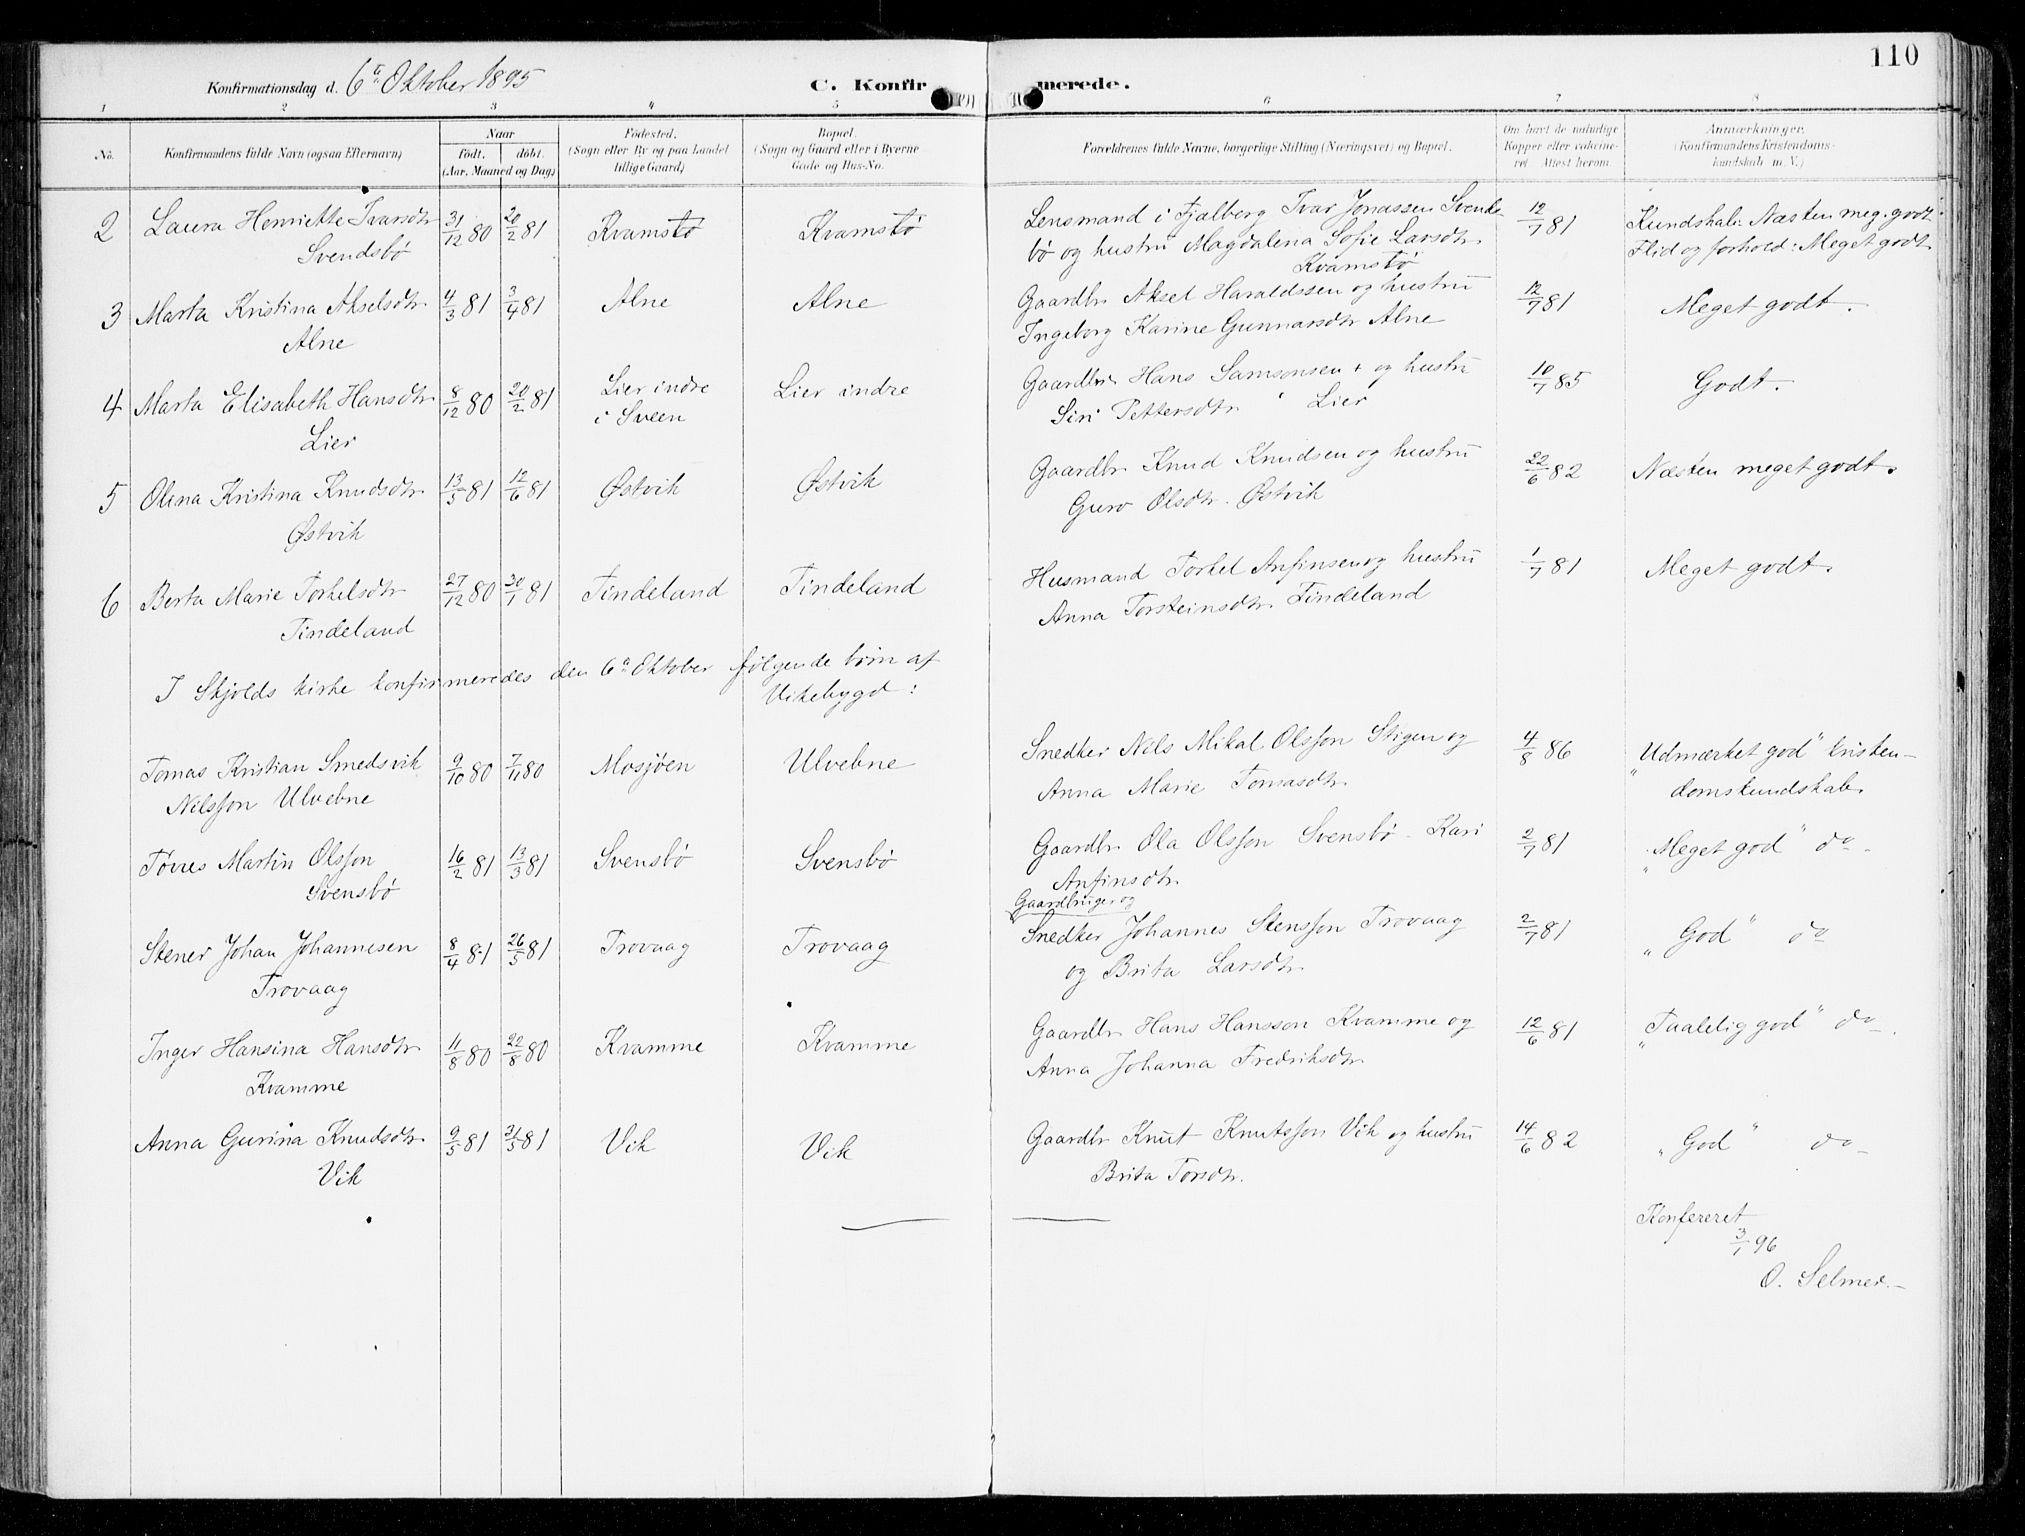 110
Konfirmationsdag d. 6te Oktober 1895 C. Konfirmerede.
1 2 3 4 5 6 7 8
No. Konfirmandens fulde Navn (ogsaa Efternavn) Naar født. døbt. (Aar, Maaned og Dag) Fødested. (Sogn eller By og paa Landet tillige Gaard) Bopæl. (Sogn og Gaard eller i Byerne Gade og Hus-No. Forældrenes fulde Navne, borgerlige Stilling (Næringsvei) og Bopæl. Om havt de naturlige Kopper eller vaccineret. Attest herom. Anmærkninger. (Konfirmandens Kristendomskundskab m. V.)
2 Laura Henriette Ivarsdtr 31/12 80 20/2 81 Kvamstø Kvamstø Lensmand i Fjelberg Ivar Jonassen Svends- 12/7 81 Kundskab: Næsten meg. godt.
Svendsbø bø og hustru Magdalena Sofie Larsdtr Flid og forhold: Meget godt
Kvamstø
3 Marta Kristina Akselsdtr 4/3 81 3/4 81 Alne Alne Gaardbr Aksel Haraldssen og hustru 12/7 81 Meget godt.
Alne Ingeborg Karine Gunnarsdtr Alne
4 Marta Elisabeth Hansdtr 8/12 80 20/2 81 Lier indre Lier indre Gaardbr. Hans Samsonsen + og hustru 10/7 85 Godt.
Lier i Sveen Siri Pettersdtr Lier
5 Olena Kristina Knudsdtr 13/5 81 12/6 81 Østvik Østvik Gaardbr Knud Knudsen og hustru 22/6 82 Næsten meget godt.
Østvik Guro Olsdtr. Østvik
6 Berta Marie Torkelsdtr 27/12 80 30/1 81 Tindeland Tindeland Husmand Torkel Anfinsen og hustru 1/7 81 Meget godt.
Tindeland Anna Torsteinsdtr. Tindeland
I Skjolds kirke konfirmeredes den 6te Oktober følgende børn af
Vikebygd:
Tomas Kristian Smedsvik 9/10 80 7/11 80 Mosjöen Ulvebne Snedker Nils Mikal Olsson Stigen og 4/8 86 "Udmærket god" kristen-
Nilsson Ulvebne Anna Marie Tomasdtr. domskundskab.
Tönes Martin Olsson 16/2 81 13/3 81 Svensbø Svensbø Gaardbr Ola Olsson Svensbø - Kari 2/7 81 "Meget god" do.
Svensbø Anfinsdtr.
Gaardbruger og
Stener Johan Johannesen 8/4 81 26/5 81 Trovaag Trovaag Snedker Johannes Stensson Trovaag 2/7 81 "God" do
Trovaag og Brita Larsdtr.
Inger Hansina Hansdtr 11/8 80 22/8 80 Kvamme Kvamme Gaardbr Hans Hansson Kvamme og 12/6 81 "Taalelig god" do.
Kvamme Anna Johanna Fredriksdtr.
Anna Gurina Knudsdtr. 9/5 81 31/5 81 Vik Vik Gaardbr Knut Knutsson Vik og hustru 14/6 82 "God" do
Vik Brita Torsdtr.
Konfereret
3/1 96
O. Selmer.